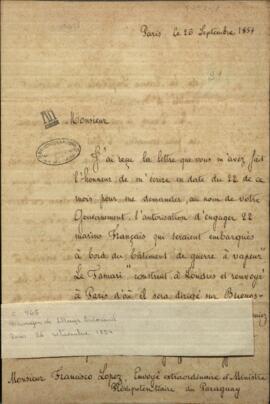 Paris, le 26 Septembre 1854
Monsieur
J'ai reçu la lettre que vous m'avez fait
l'honneur de m'écrire en date du 22 de ce
mois, pour me demander, au nom de votre
Gouvernement, l'autorisation d'engager 22
marins Français qui seraient embarqués
à bord du bâtiment de guerre à vapeur
"Le Tamari" construit à Londres et renvoyé
à Paris d'où il sera dirigé sur Buenos-
C. 965
Paris 26
1854
Monsieur Francisco Lopez, Envoyé extraordinaire et Ministre
Plénipotentiaire du Paraguay